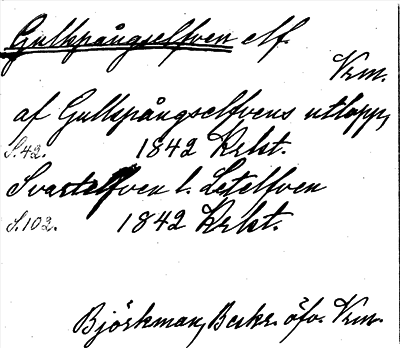 Gullspångselfven elf.
Vrm.
af Gullspångselfvens utlopp,
S. 42. 1842 Krkt.
Svartelfven l. Letelfven
S. 102. 1842 Krkt.
Björkman, Beskr. öfv. Vrm.